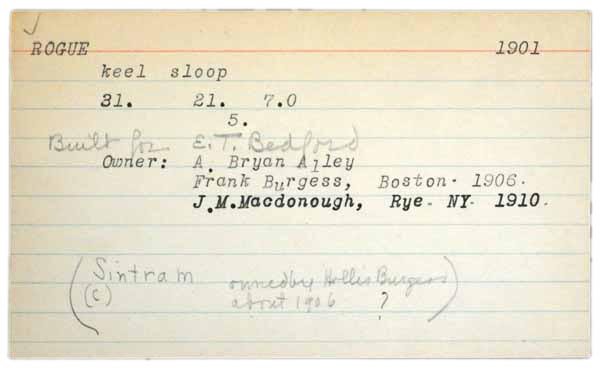 ROGUE 1901
keel sloop
31. 21. 7.0
5.
Built for E.T. Bedford
Owner: A. Bryan Alley
Frank Burgess, Boston. 1906.
J.M.Macdonough, Rye. NY. 1910.
(Sintram owned by Hollis Burgess
(C) about 1906 ?)